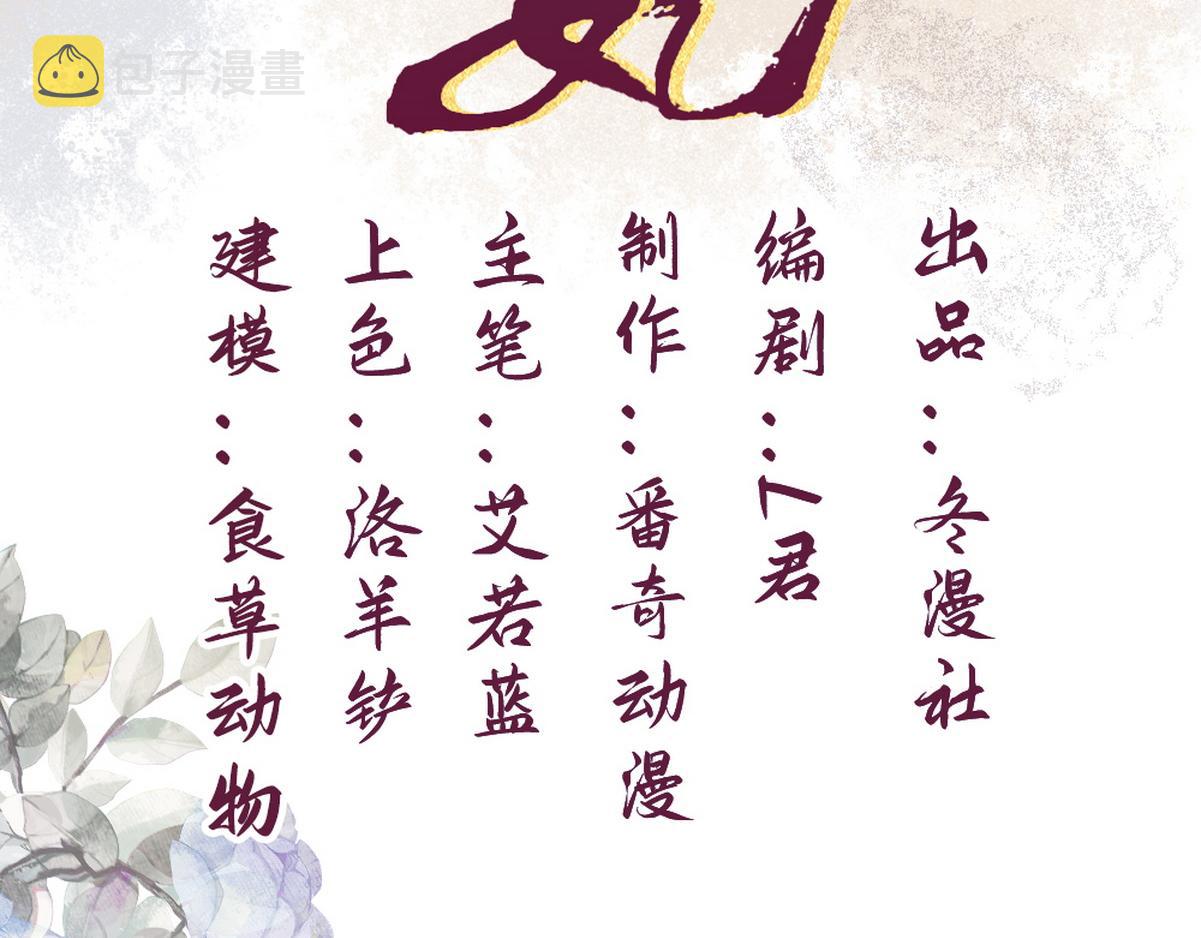 包子漫畫
出品：冬漫社
编剧：T君
制作：番奇动漫
主笔：艾若蓝
上色：洛羊铲
建模：食草动物